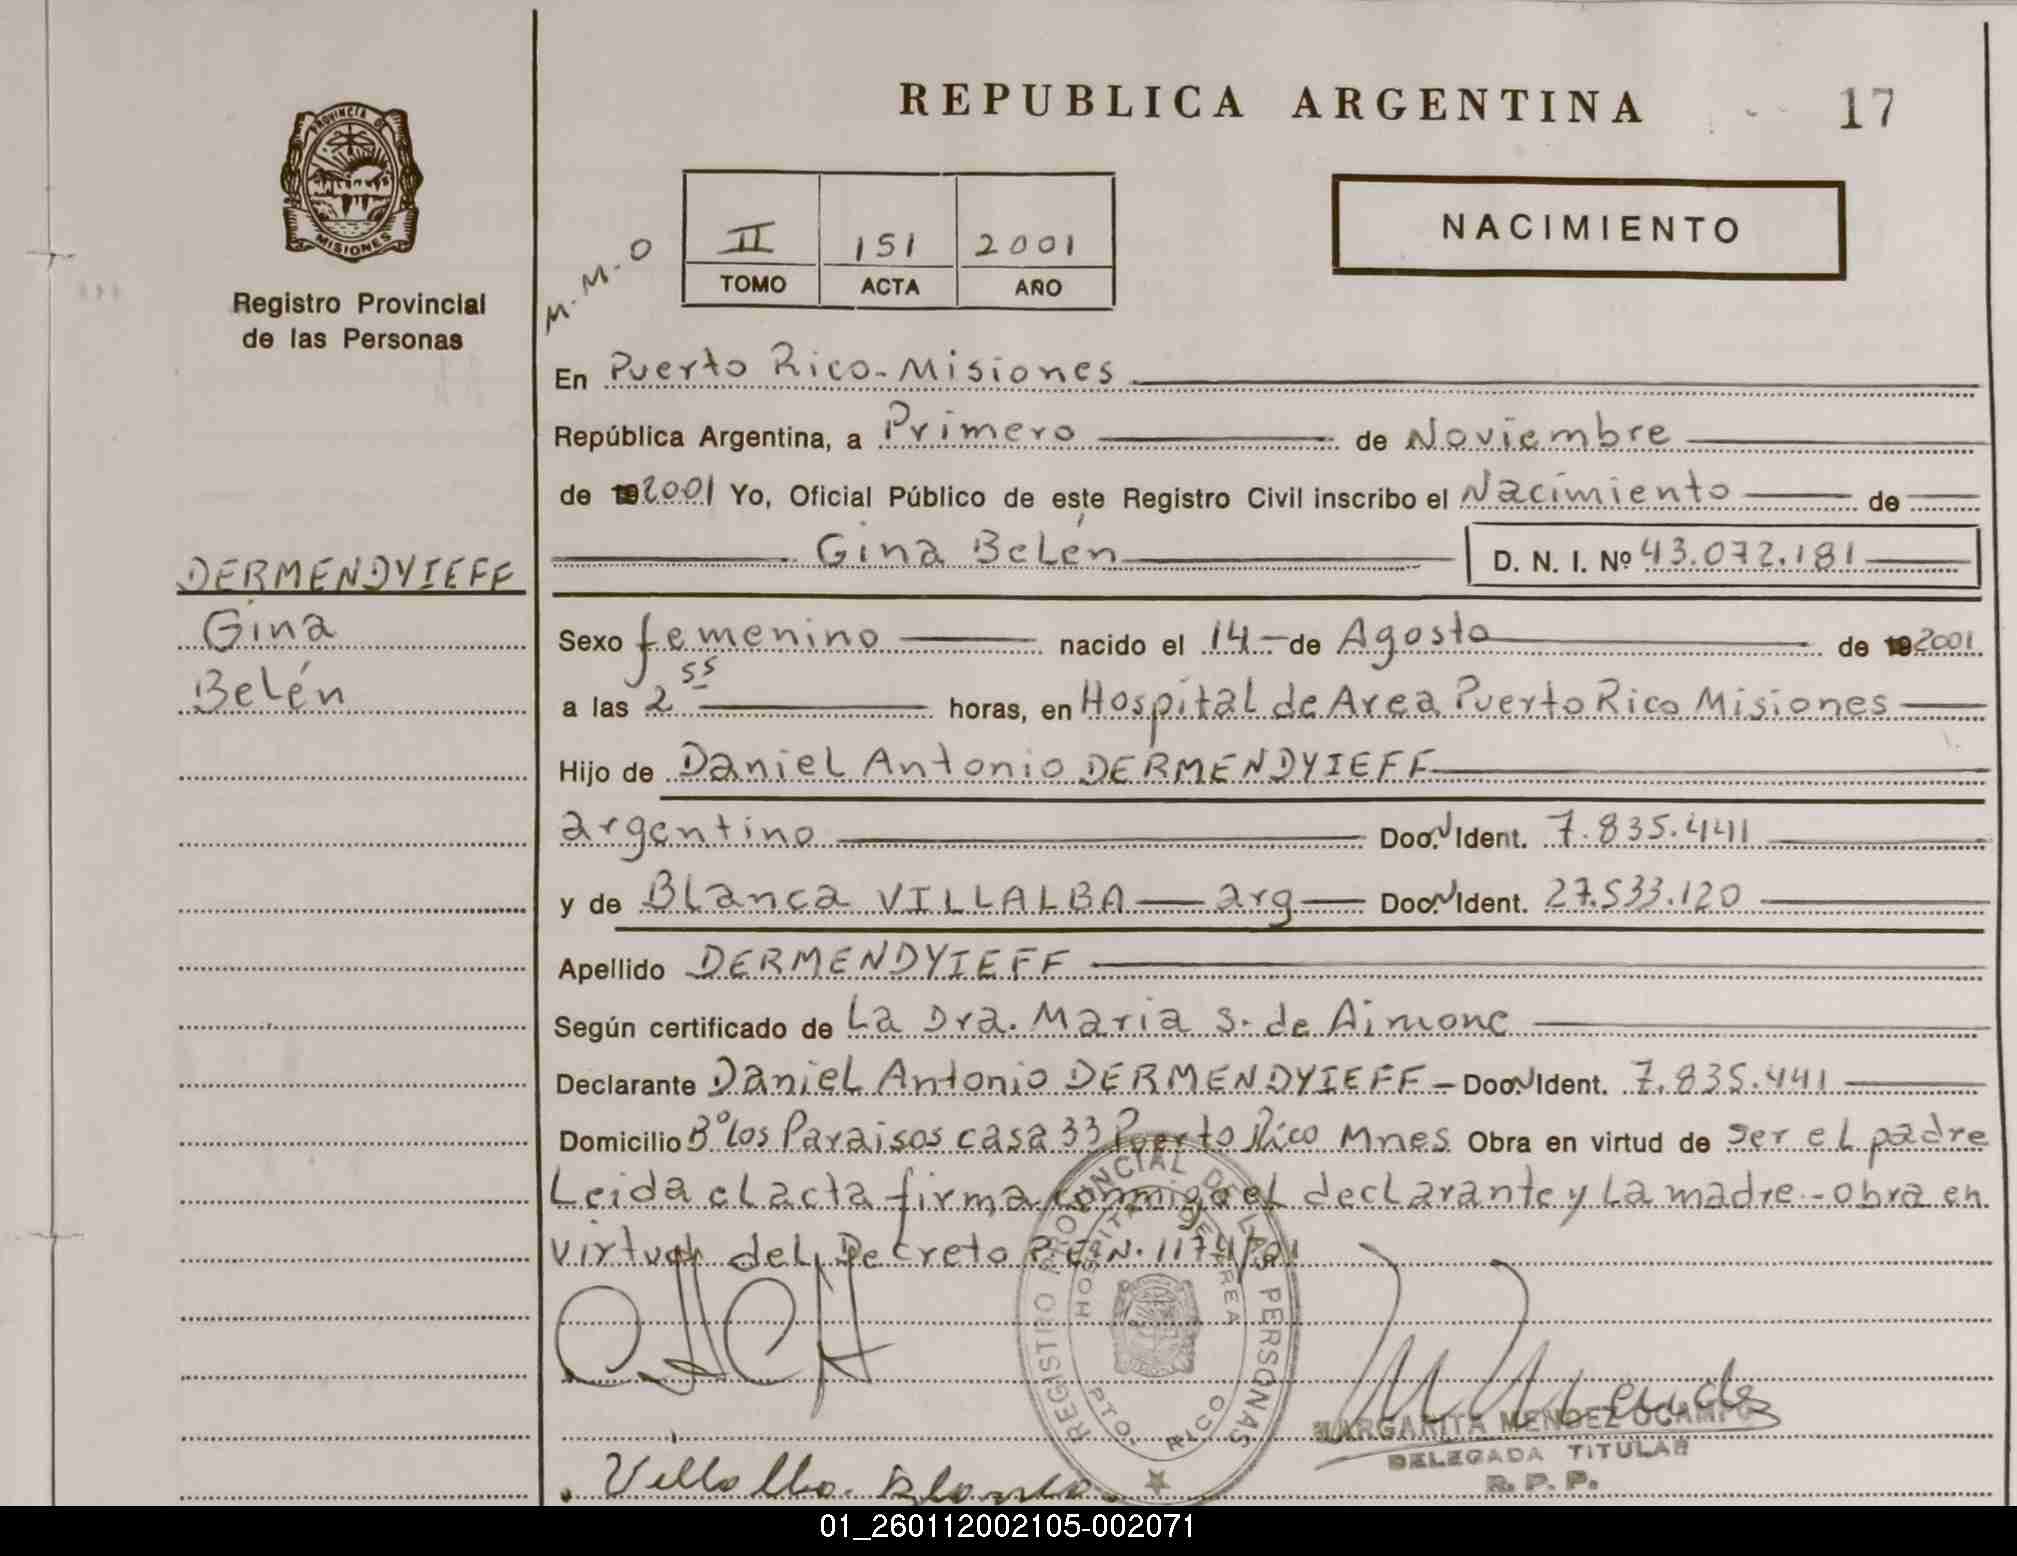 REPUBLICA ARGENTINA
17
PROVINCIA DE
MISIONES
Registro Provincial
de las Personas
M.M.O
II 151 2001
TOMO ACTA AÑO
NACIMIENTO
En Puerto Rico-Misiones
República Argentina, a Primero de Noviembre
de 2001 Yo, Oficial Público de este Registro Civil inscribo el Nacimiento de
Gina Belén D. N. I. Nº 43.072.181
DERMENDYIEFF
Gina
Belén
Sexo femenino nacido el 14 de Agosto de 2001
a las 2 55 horas, en Hospital de Area Puerto Rico Misiones
Hijo de Daniel Antonio DERMENDYIEFF
argentino Doc. Ident. 7.835.441
y de Blanca VILLALBA arg Doc. Ident. 27.533.120
Apellido DERMENDYIEFF
Según certificado de La Dra. Maria S. de Aimone
Declarante Daniel Antonio DERMENDYIEFF Doc. Ident. 7.835.441
Domicilio Bº Los Paraisos casa 33 Puerto Rico Mnes Obra en virtud de ser el padre
Leida el acta firma conmigo el declarante y La madre - obra en
virtud del Decreto P.E.N. 1174/01
REGISTRO PROVINCIAL DE LAS PERSONAS
HOSPITAL DE AREA
PTO. RICO
MARGARITA MENDEZ OCAMPO
DELEGADA TITULAR
R. P. P.
Villalba Blanca
01_260112002105-002071